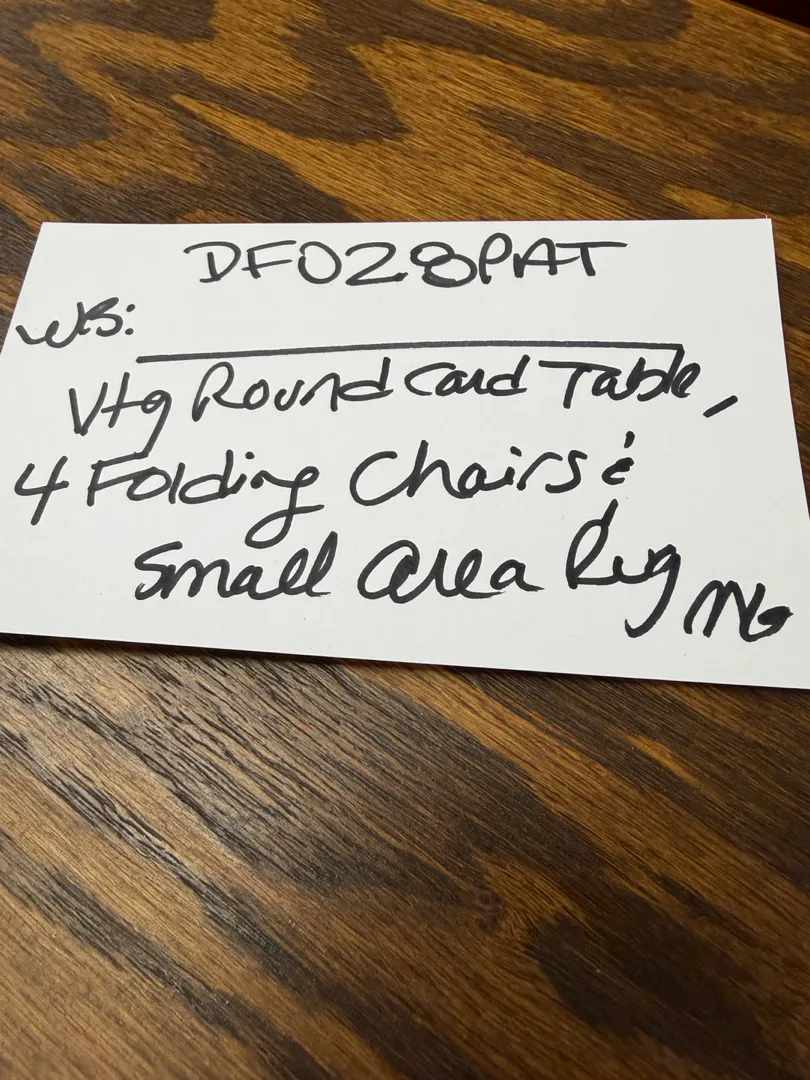 DF028PAT
WB:
Vtg Round Card Table,
4 Folding Chairs &
Small Area Rug